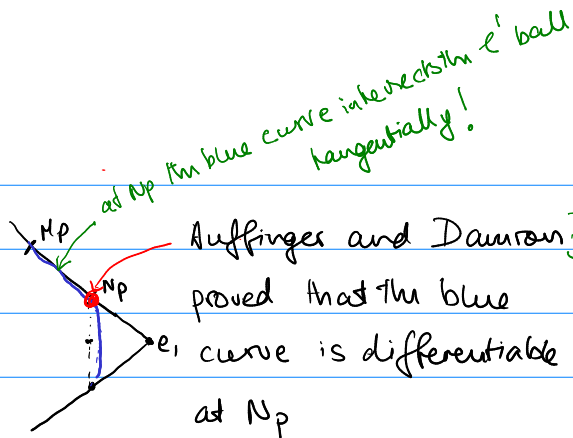 at Np the blue curve intersects the ℓ' ball
tangentially!
Mp
Np
e₁
Auffinger and Damron
proved that the blue
curve is differentiable
at Np